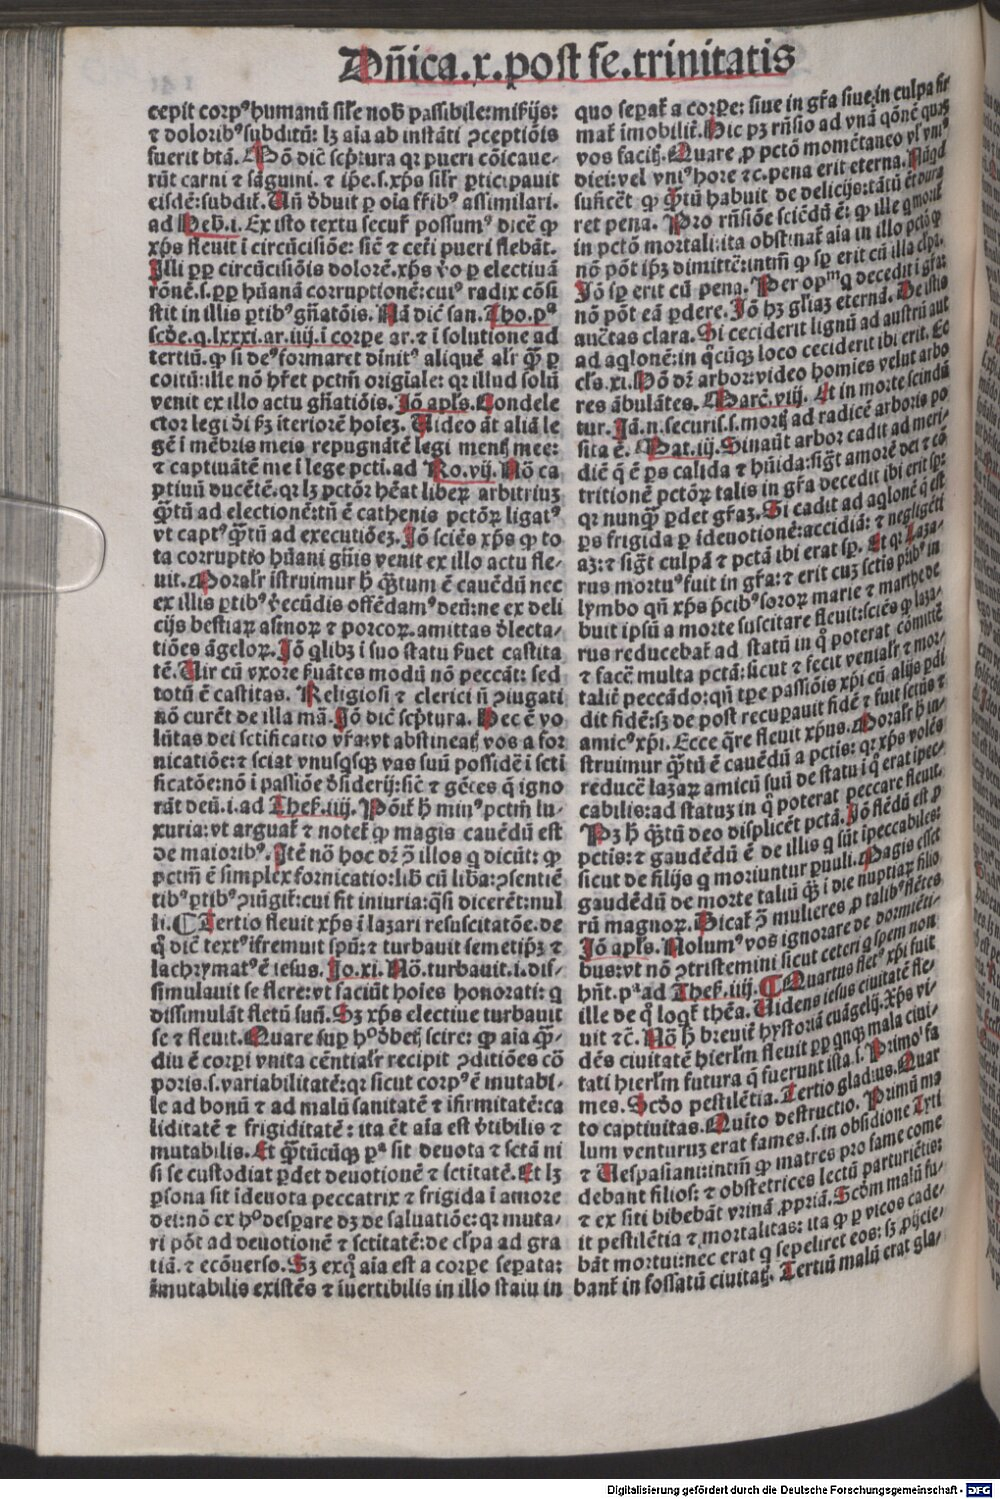 Dñica.x.post fe.trinitatis
cepit corpꝰ humanũ sil'e nob̃ passibile: miserijs:
⁊ doloribꝰ subditũ: lꝫ aĩa ab instãti ↄceptiõis
fuerit btã. Nõ dic̃ scp̃tura qꝛ pueri cõicaue-
rũt carni ⁊ sãguini. ⁊ ip̃e.s.xp̃s sil'r ꝑticipauit
eisdẽ: subdit̃. Uñ ð̃buit ꝑ oĩa fr̃ibꝰ assimilari.
ad Heb.i. Ex isto textu secur̃ possumꝰ dicẽ ꝙ
xp̃s fleuit ĩ circũcisiõe: sic̃ ⁊ cet̃i pueri flebãt.
Illi ꝓp̃ circũcisiõis dolorẽ. xp̃s v̾o ꝑ electiuã
rõnẽ.s.ꝓp̃ hũanã corruptionẽ: cuiꝰ radix cõsi
stit in illis ꝑtibꝰ gñatõis. Nã dic̃ san. Tho.pᵃ
scd̃e.q.lxxxi.ar.iiij.ĩ corpe ar. ⁊ ĩ solutione ad
tertiũ. ꝙ si deꝰ formaret diuĩtꝰ aliquẽ al'r ꝙ̃ ꝑ
coitũ: ille nõ hr̃et pctm̃ origiale: qꝛ illud solũ
venit ex illo actu gñatiõis. Iõ apl's. Condele
ctor legi ð̃i ẜꝫ iteriorẽ hoĩeꝫ. Uideo ãt aliã le
gẽ ĩ mẽbris meis repugnãtẽ legi mentꝭ mee:
⁊ captiuãtẽ me ĩ lege pcti. ad Ro.vij. Nõ ca
ptiuũ ducẽtẽ. qꝛ lꝫ pctõꝛ hẽat liberꝫ arbitriuꝫ
ꝙ̃tũ ad electionẽ: tñ ẽ cathenis pctõꝝ ligatꝰ
vt captꝰ ꝙ̃tũ ad executiõeꝫ. Iõ sciẽs xp̃s ꝙ to
ta corruptio hũani gñis venit ex illo actu fle-
uit. Moral'r ĩstruimur h̃ ꝙ̃tum ẽ cauẽdũ nec
ex illis ꝑtibꝰ v̾ecũdis offẽdamꝰ deũ: ne ex deli
cijs bestiaꝝ asinoꝝ ⁊ porcoꝝ. amittas ð̃lecta-
tiões ãgeloꝝ. Iõ qlibꝫ ĩ suo statu ẜuet castita
tẽ. Uir cũ vxore ẜuãtes modũ nõ peccãt: sed
totũ ẽ castitas. Religiosi ⁊ clerici ñ ↄiugati
nõ curẽt de illa mã. Iõ dic̃ scp̃tura. Hec ẽ vo
lũtas dei sctificatio vr̃a: vt abstineatꝭ vos a for
nicatiõe: ⁊ sciat vnusqsqꝫ vas suũ possidẽ ĩ scti
ficatõe: nõ ĩ passiõe ð̃siderij: sic̃ ⁊ gẽtes q̃ igno
rãt deũ.i.ad Thes̃.iiij. Põit̃ h̃ minꝰ pctm̃ lu-
xuria: vt arguat̃ ⁊ notet̃ ꝙ magis cauẽdũ est
de maioribꝰ. Itẽ nõ hoc dr̃ ↄ̃ illos q dicũt: ꝙ
pctm̃ ẽ simplex fornicatio: lib̃ cũ lib̃a: ↄsentiẽ
tibꝰ ꝑtibꝰ ↄiũgit̃: cui fit iniuria: q̃si dicerẽt: nul
li. ¶ Tertio fleuit xp̃s ĩ lazari resuscitatõe. de
q̊ dic̃ textꝰ ĩfremuit sp̃u: ⁊ turbauit semetip̃ꝫ ⁊
lachrymatꝰ ẽ iesus. Io.xi. Nõ.turbauit.i.dis-
simulauit se flere: vt faciũt hoĩes honorati: q
dissimulãt fletũ suũ. Sꝫ xp̃s electiue turbauit
se ⁊ fleuit. Quare sup̃ hᵒ ð̃betꝭ scire: ꝙ aĩa ꝙ̃-
diu ẽ corpi vnita cẽntial'r recipit ↄditiões cõ
poris.s.variabilitatẽ: qꝛ sicut corpꝰ ẽ mutabi-
le ad bonũ ⁊ ad malũ sanitatẽ ⁊ ĩfirmitatẽ: ca
liditatẽ ⁊ frigiditatẽ: ita ẽt aĩa est v̾tibilis ⁊
mutabilis. Et ꝙ̃tũcũqꝫ pᵃ sit deuota ⁊ sctã ni
si se custodiat ꝑdet deuotionẽ ⁊ sctitatẽ. Et lꝫ
ꝑsona sit ĩdeuota peccatrix ⁊ frigida ĩ amore
dei: nõ ex hᵒ desperare dꝫ de saluatiõe: qꝛ muta-
ri põt ad deuotionẽ ⁊ sctitatẽ: de cl'pa ad gra
tiã. ⁊ ecõuerso. Sꝫ exq̊ aĩa est a corpe sepata:
ĩmutabilis existẽs ⁊ ĩuertibilis in illo statu in
quo sepat̃ a corpe: siue in gr̃a siue in culpa fir
mat̃ ĩmobilit̃. Hic pꝫ rñsio ad vnã qõnẽ quaꝫ
vos facitꝭ. Quare ꝓ pctõ momẽtaneo vl' vniꝰ
diei: vel vniꝰ hore ⁊c. pena erit eterna. Nũqd
suficẽt ꝙ ꝙ̃tũ habuit de delicijs: tãtũ ẽt dura
ret pena. Pro rñsiõe sciẽdũ ẽ: ꝙ ille q morit̃
in pctõ mortali: ita obstinat̃ aĩa in illo pctõ ꝙ
nõ põt ip̃ꝫ dimittẽ: intm̃ ꝙ sp̃ erit cũ illa cl'pa.
Iõ sp̃ erit cũ pena. Per opᵐ q decedit ĩ gr̃a:
nõ põt eã ꝑdere. Iõ hꝫ gl'iaꝫ eternã. De istis
auc̃tas clara. Si ceciderit lignũ ad austrũ aut
ad aqlonẽ: in q̊cũqꝫ loco ceciderit ibi erit. Ec
cl's.xi. Nõ dr̃ arbor: video homies velut arbo
res ãbulãtes. Marc̃.viij. Et in morte scindũ
tur. Iã.n.securis.s.mortꝭ ad radicẽ arboris po
sita ẽ. Mat.iij. Sinaũt arbor cadit ad meri-
diẽ q̃ ẽ ꝑs calida ⁊ hũida: sigt̃ amorẽ dei ⁊ cõ
tritionẽ pctõꝝ talis in gr̃a decedit ibi erit sp̃:
qꝛ nunꝙ̃ ꝑdet gr̃aꝫ. Si cadit ad aqlonẽ q̃ est
ꝑs frigida ꝑ ĩdeuotionẽ: accidiã: ⁊ negligẽti
aꝫ: ⁊ sigt̃ culpã ⁊ pctã ibi erat sp̃. Et qꝛ Laza-
rus mortuꝰ fuit in gr̃a: ⁊ erit cuꝫ sctis pr̃ibꝰ in
lymbo qñ xp̃s p̃cibꝰ soroꝝ marie ⁊ marthe de
buit ipsũ a morte suscitare fleuit: sciẽs ꝙ laza-
rus reducebat̃ ad statũ in q̊ poterat cõmittẽ
⁊ facẽ multa pctã: sicut ⁊ fecit venial'r ⁊ mor-
talit̃ peccãdo: qñ tp̃e passiõis xp̃i cũ alijs ꝑdi
dit fidẽ: sꝫ de post recuꝑauit fidẽ ⁊ fuit sctũs ⁊
amicꝰ xp̃i. Ecce q̃re fleuit xp̃us. Moral'r h̃ in-
struimur ꝙ̃tũ ẽ cauẽdũ a pctis: qꝛ xp̃s volẽs
reducẽ lazaꝝ amicũ suũ de statu ĩ q̊ erat ĩpec-
cabilis: ad statuꝫ in q̊ poterat peccare fleuit.
Pꝫ h̃ ꝙ̃tũ deo displicẽt pctã. Iõ flẽdũ est ꝓ
pctis: ⁊ gaudẽdũ ẽ de illis q sũt ĩpeccabiles:
sicut de filijs q moriuntur ꝑuuli. Magis esset
gaudẽdũ de morte taliũ ꝙ̃ ĩ die nuptiaꝝ filio
rũ magnoꝝ. Dicat̃ ↄ̃ mulieres ꝓ talibꝰ flẽtes
Iõ apl's. Nolumꝰ vos ignorare de dormiẽti-
bus: vt nõ ↄtristemini sicut ceteri q spem non
hñt. pᵃ ad Thes̃.iiij. ¶ Quartus fletꝰ xp̃i fuit
ille de q̊ loqt̃ thẽa. Uidens iesus ciuitatẽ fle-
uit ⁊c̃. Nõ h̃ breuit̃ hystoriã euãgelij. Xp̃s vi-
dẽs ciuitatẽ hierl'm fleuit ꝓp̃ qnqꝫ mala ciui-
tati hierl'm futura q̃ fuerunt ista.s. Primo fa
mes. Scd̃o pestilẽtia. Tertio gladius. Quar
to captiuitas. Quĩto destructio. Primũ ma
lum venturuꝫ erat fames.s.in obsidione Tyti
⁊ Uespasiani: intm̃ ꝙ matres pro fame come
debant filios: ⁊ obstetrices lectũ parturiẽtis:
⁊ ex siti bibebãt vrinã ꝓpriã. Scdm malũ fu-
it pestilẽtia ⁊ mortalitas: ita ꝙ ꝑ vicos cade-
bãt mortui: nec erat q sepeliret eos: sꝫ ꝓijcie-
bant̃ in fossatũ ciuitatꝭ. Tertiũ malũ erat gla-
Digitalisierung gefördert durch die Deutsche Forschungsgemeinschaft - DFG